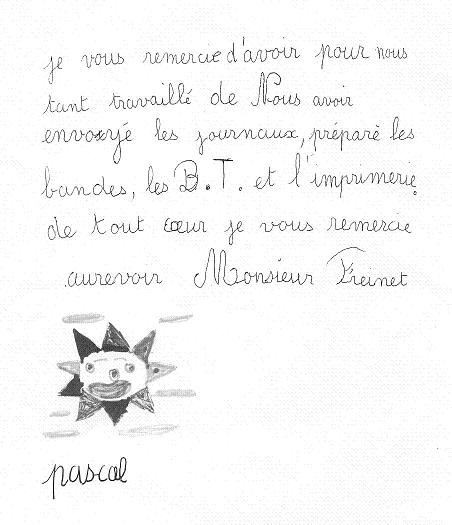 je vous remercie d'avoir pour nous
tant travaillé de Nous avoir
envoyé les journaux, préparé les
bandes, les B.T. et l'imprimerie.
de tout cœur je vous remercie
aurevoir Monsieur Freinet
pascal